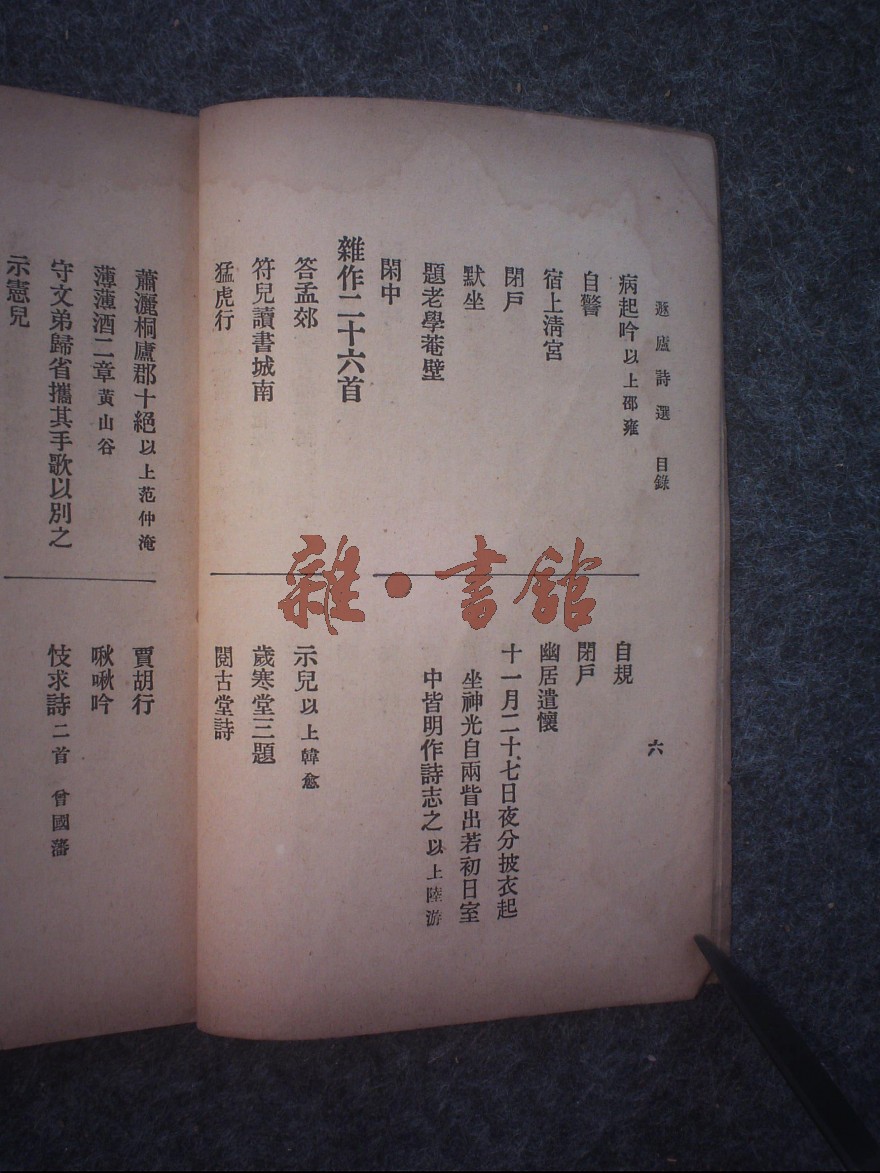 遯廬詩選 目錄
六
病起吟 以上邵雍
自警
宿上清宮
閉戶
默坐
題老學菴壁
閑中
雜作二十六首
答孟郊
符兒讀書城南
猛虎行
自規
閉戶
幽居遣懷
十一月二十七日夜分披衣起
坐神光自兩眥出若初日室
中皆明作詩志之 以上陸游
示兒 以上韓愈
歲寒堂三題
閱古堂詩
蕭灑桐廬郡十絕 以上范仲淹
薄薄酒二章 黃山谷
守文弟歸省攜其手歌以別之
示憲兒
賈胡行
啾啾吟
忮求詩 二首 曾國藩
雜·書館